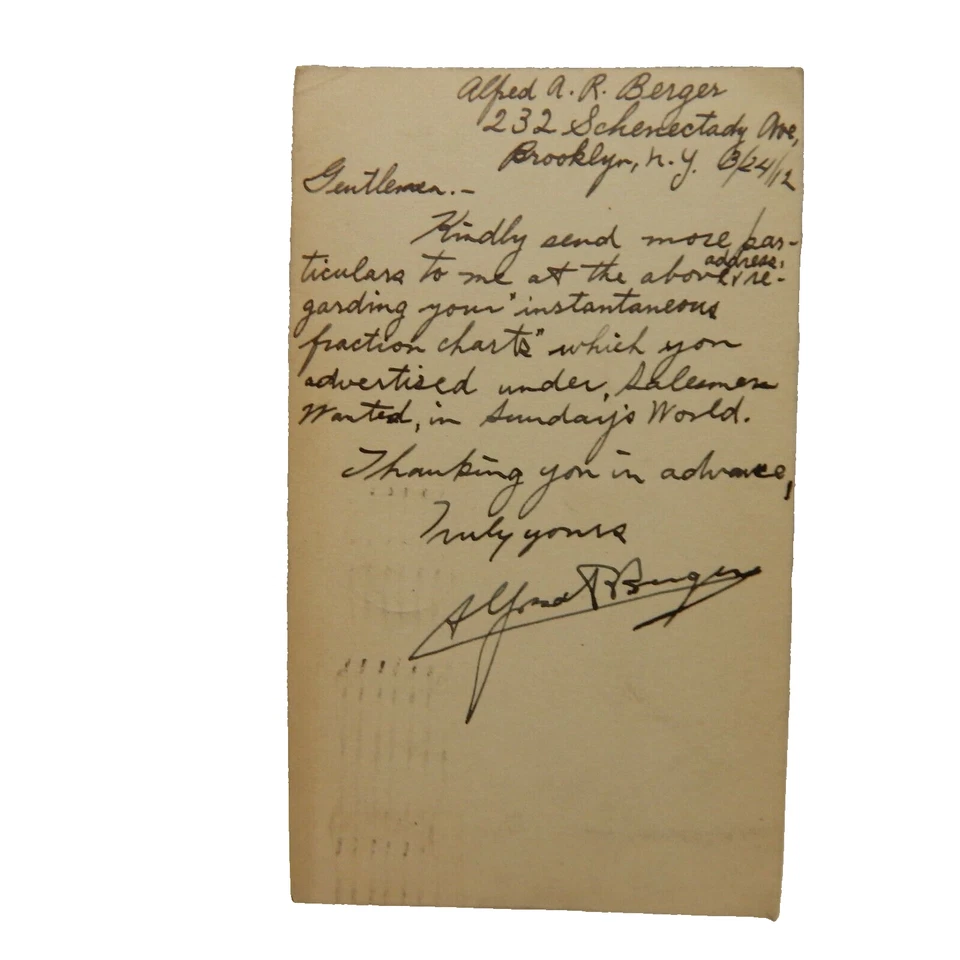 Alfred A. R. Berger
232 Schenectady Ave,
Brooklyn, N.Y. 3/24/12
Gentlemen.-
Kindly send more par-
ticulars to me at the above address, re-
garding your "instantaneous
fraction charts" which you
advertised under, Salesmen
Wanted, in Sunday's World.
Thanking you in advance,
Truly yours
Alfred R Berger